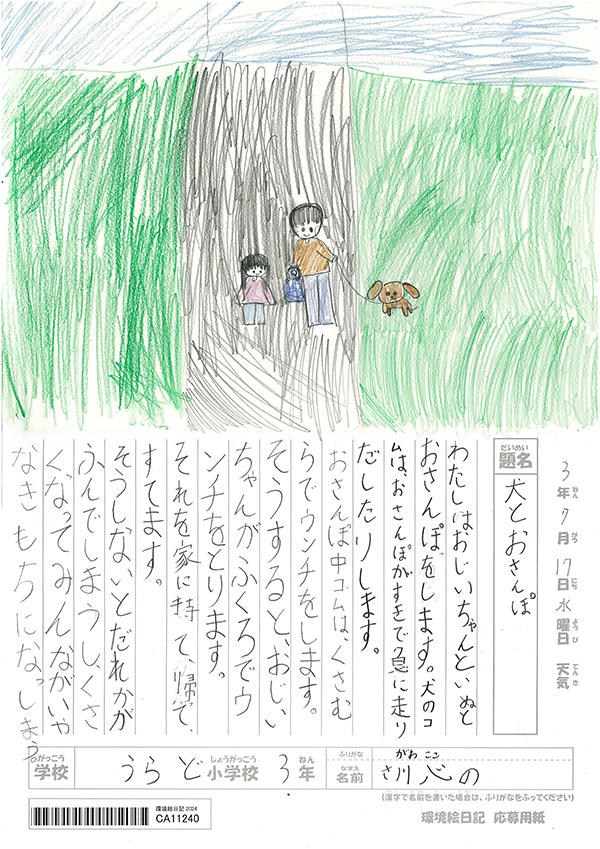 3年ねん 7月がつ 17日にち 水曜日ようび 天気てんき
だいめい
題名
犬とおさんぽ
わたしはおじいちゃんといぬと
おさんぽをします。犬のコ
ムは、おさんぽがすきで急に走り
だしたりします。
おさんぽ中コムは、くさむ
らでウンチをします。
そうすると、おじい
ちゃんがふくろでウ
ンチをとります。
それを家に持て、帰て、
すてます。
そうしないとだれかが
ふんでしまうしくさ
くなってみんながいや
なきもちになっしまう。
がっこう
学校
うらど小学校しょうがっこう 3年ねん
ふりがな
がわ ここ
なまえ
名前
川 心の
(漢字で名前を書いた場合は、ふりがなをふってください)
環境絵日記 2024
CA11240
環境絵日記 応募用紙